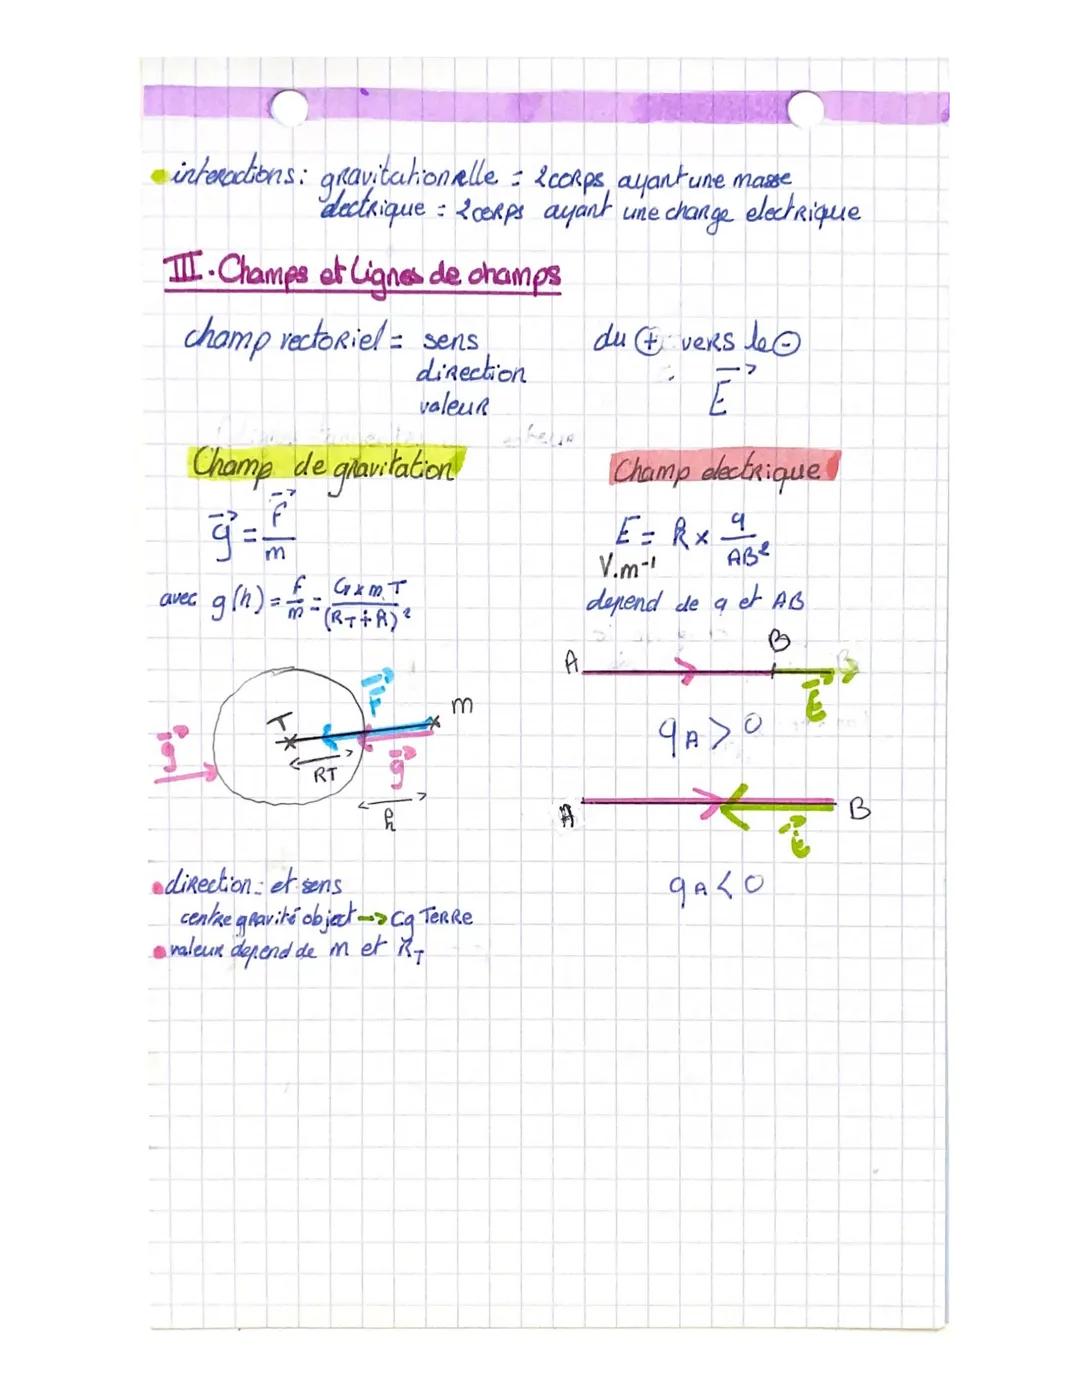 interactions: gravitationelle = 2 corps ayant une masse
electrique = 2 corps ayant une charge electrique
III. Champs et lignes de champs
champ vectoriel = sens
direction
valeur
du ⊕ vers le ⊖
E→
Champ de gravitation
g→ = F→/m
avec g(h) = F/m = G x mT/(RT + h)²
T
RT
F→
m
g→
g→
h
direction: et sens
centre gravité object → Cg TERRE
valeur depend de m et RT
Champ electrique
E = k x q/AB²
V.m⁻¹
depend de q et AB
A
B
E→
qA > 0
A
B
E→
qA < 0